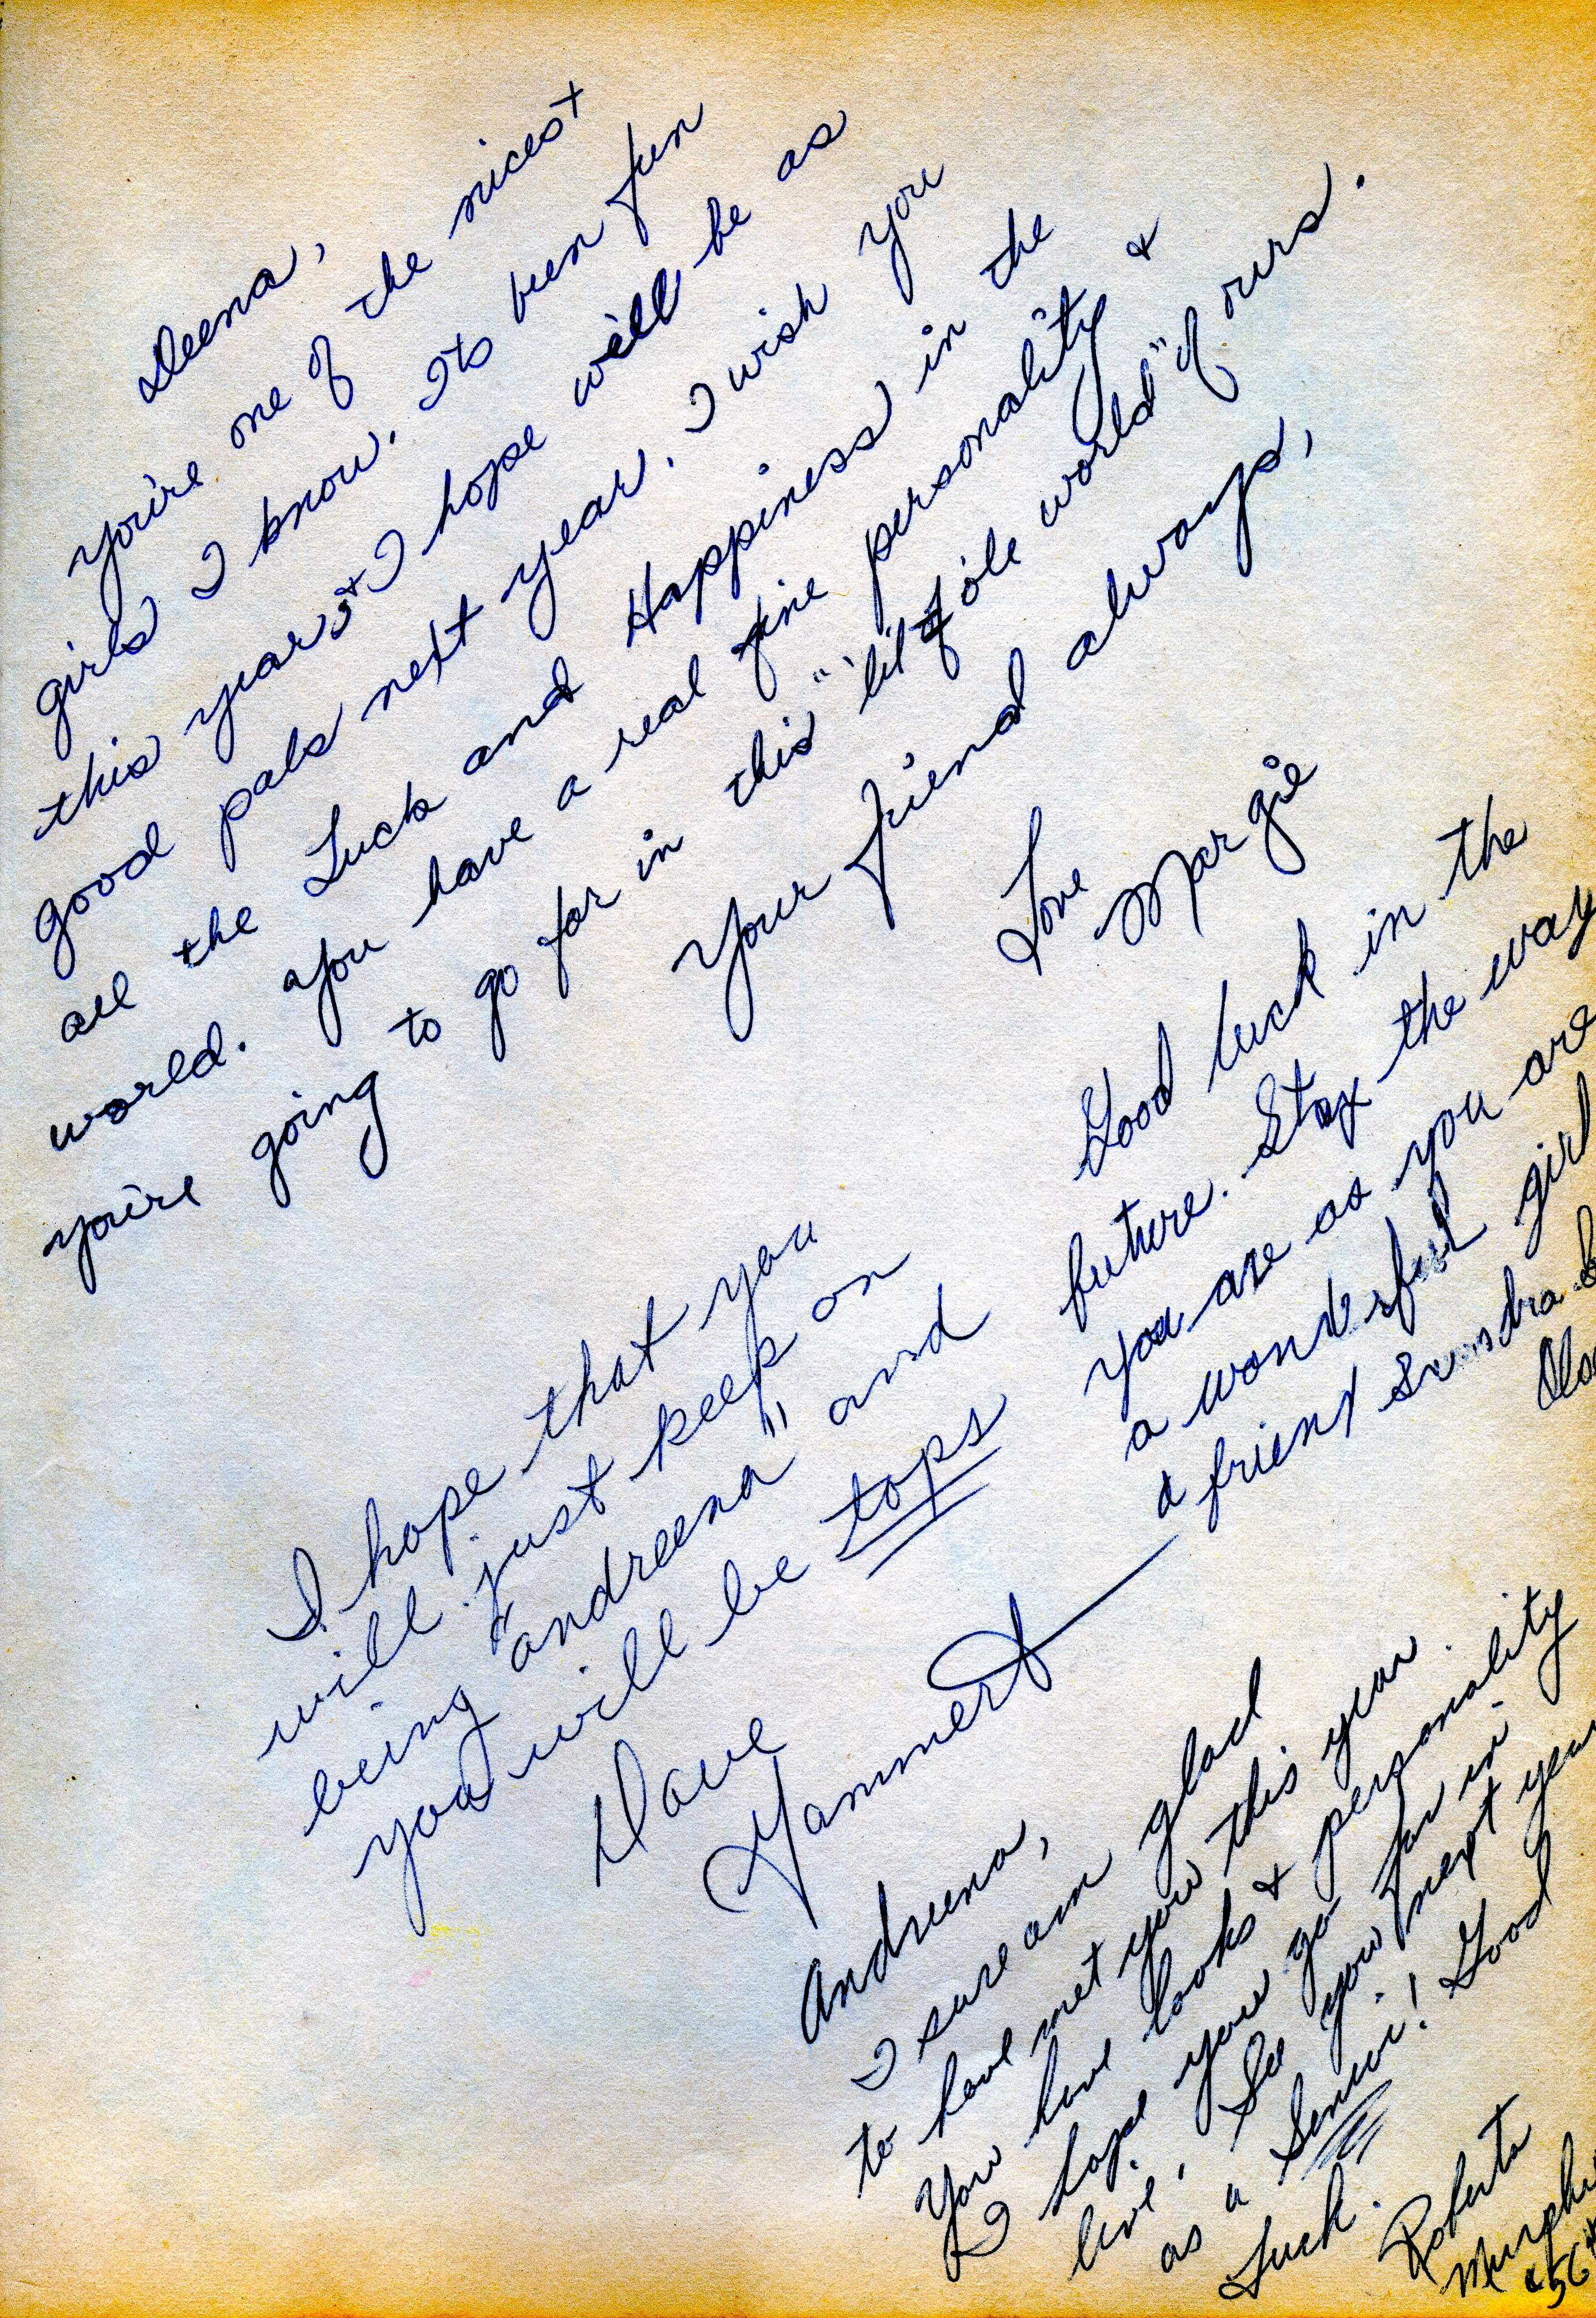 Deena,
You're one of the nicest
girls I know. Its been fun
this year & I hope will be as
good pals next year. I wish you
all the Luck and Happiness in the
world. You have a real fine personality &
you're going to go far in this "'lil ole world" of ours.
Your friend always,
Love
Margie
Good luck in the
future. Stay the way
you are as you are
a wonderful girl
a friend Sandra
I hope that you
will just keep on
being "andreena" and
you will be tops
Dave
Hammert
Andreena,
I sure am glad
to have met you this year.
You have looks & personality
I hope you go far in
live. See you next year
as a Senior! Good
Luck.
Roberta
Murphy
"56"